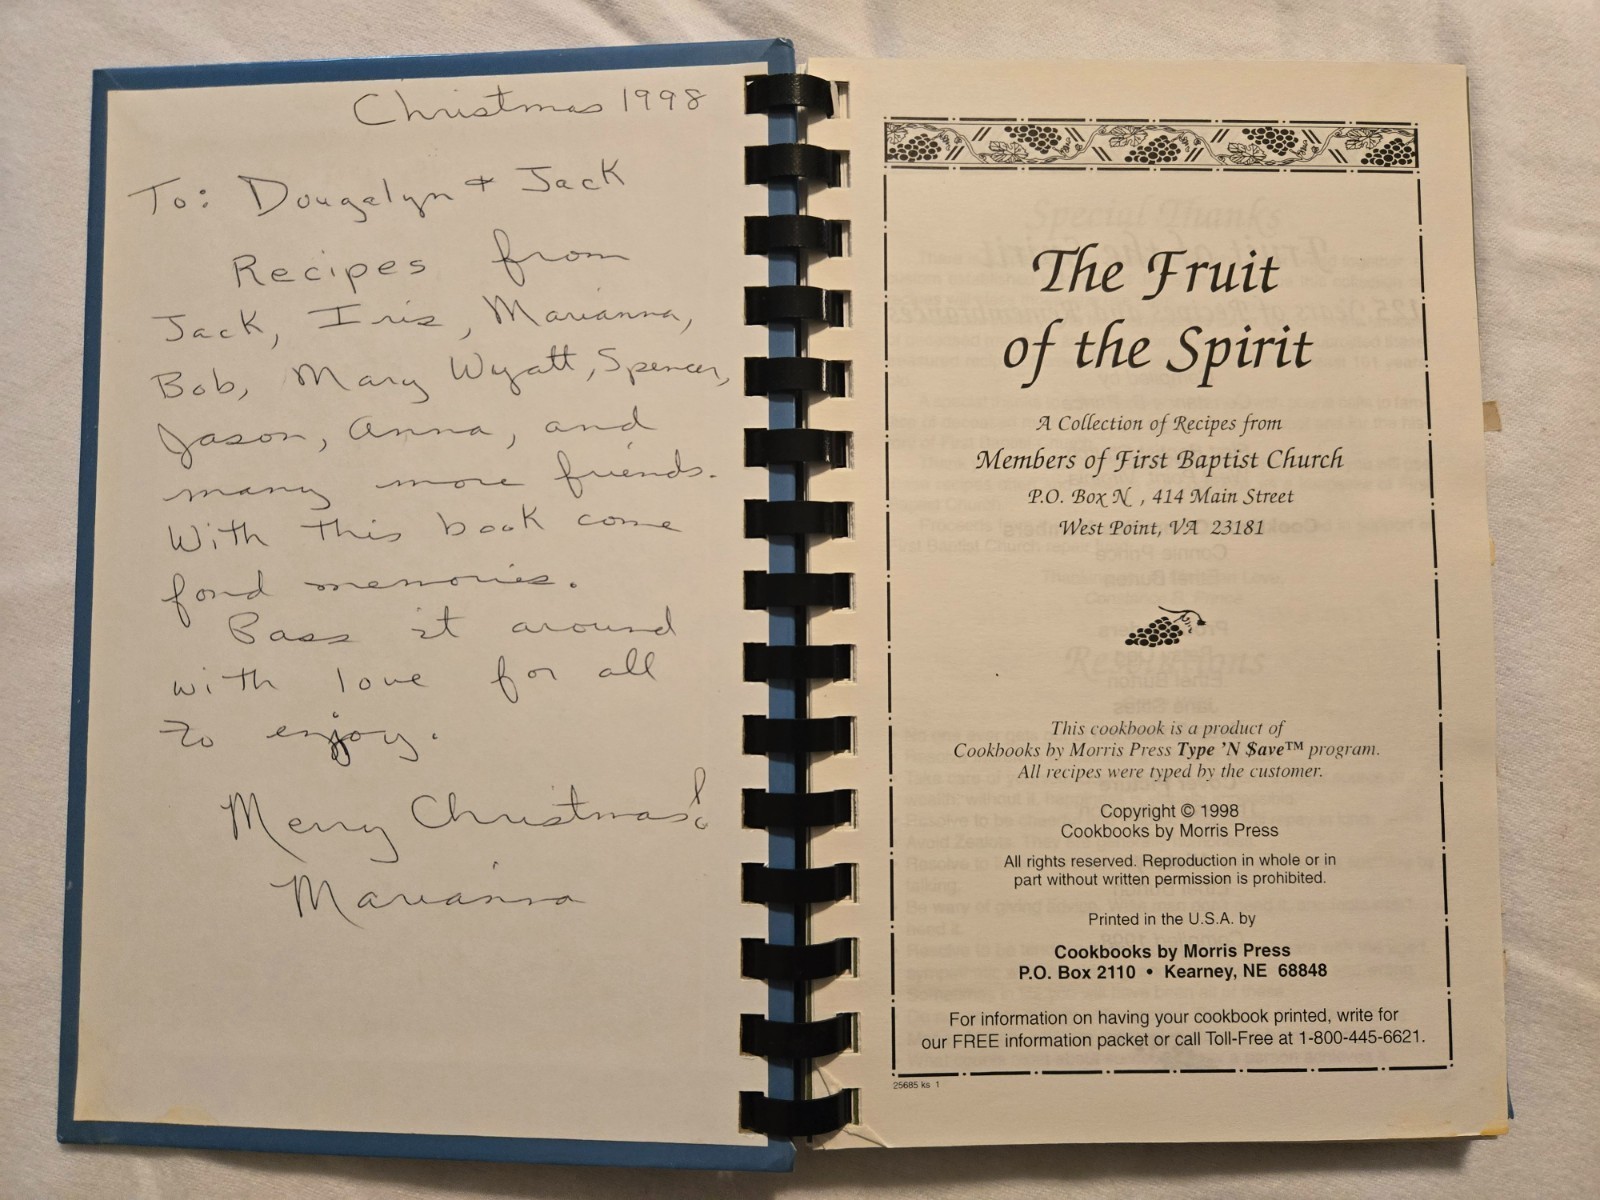 Christmas 1998
To: Dougelyn + Jack
Recipes from
Jack, Iris, Marianna,
Bob, Mary Wyatt, Spencer,
Jason, Anna, and
many more friends.
With this book come
fond memories.
Pass it around
with love for all
to enjoy.
Merry Christmas!
Marianna
The Fruit
of the Spirit
A Collection of Recipes from
Members of First Baptist Church
P.O. Box N , 414 Main Street
West Point, VA 23181
This cookbook is a product of
Cookbooks by Morris Press Type 'N $ave™ program.
All recipes were typed by the customer.
Copyright © 1998
Cookbooks by Morris Press
All rights reserved. Reproduction in whole or in
part without written permission is prohibited.
Printed in the U.S.A. by
Cookbooks by Morris Press
P.O. Box 2110 • Kearney, NE 68848
For information on having your cookbook printed, write for
our FREE information packet or call Toll-Free at 1-800-445-6621.
25685 ks 1